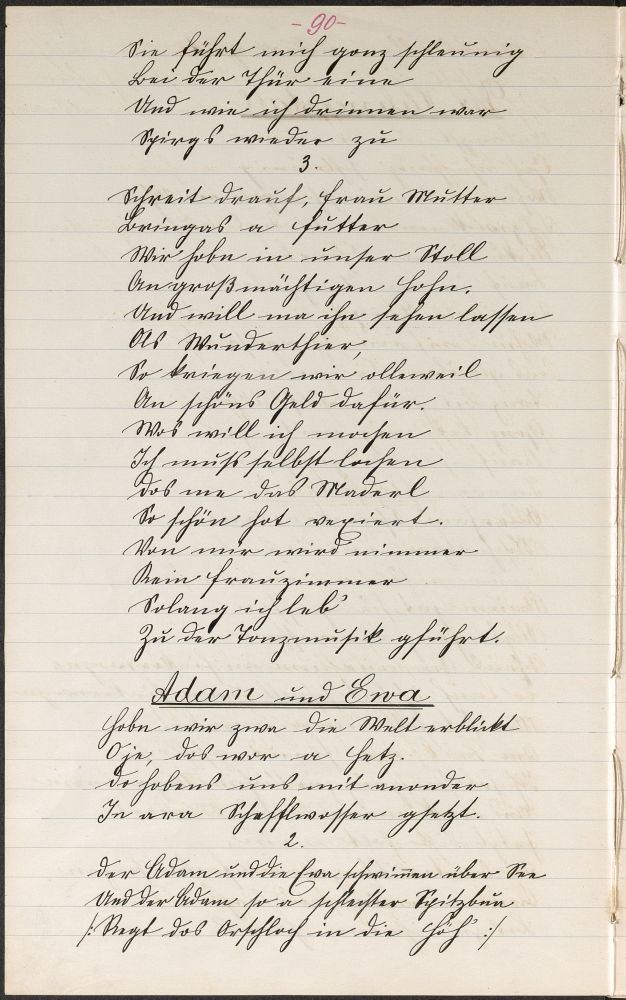 - 90 -
Sie führt mich ganz schleunig
Bei der Thür eine
Und wie ich drinnen war
Spirgs wieder zu
3.
Schreit drauf, Frau Mutter
Bringas a Futter
Wir hobn in unser Stoll
An großmächtigen Hohn.
Und will ma ihn sehen lassen
Ols Wunderthier,
So kriegen wir olleweil
An schöns Geld dafür.
Wos will ich mochen
Ich muß selbst lochen
Dos me das Maderl
So schön hot vexiert.
Von mir wird nimmer
Kein Frauzimmer
Solang ich leb'
Zu der Tonzmusik gführt.
Adam und Ewa
Hobn wir zwa die Welt erblickt
O je, dos wor a Hetz.
Do hobens uns mit anonder
In ara Schafflwosser gsetzt.
2.
Der Adam und die Eva schwim̅en über See
Und der Adam so a schlechter Spitzbua
/: Regt das Orschloch in die Höh' :/